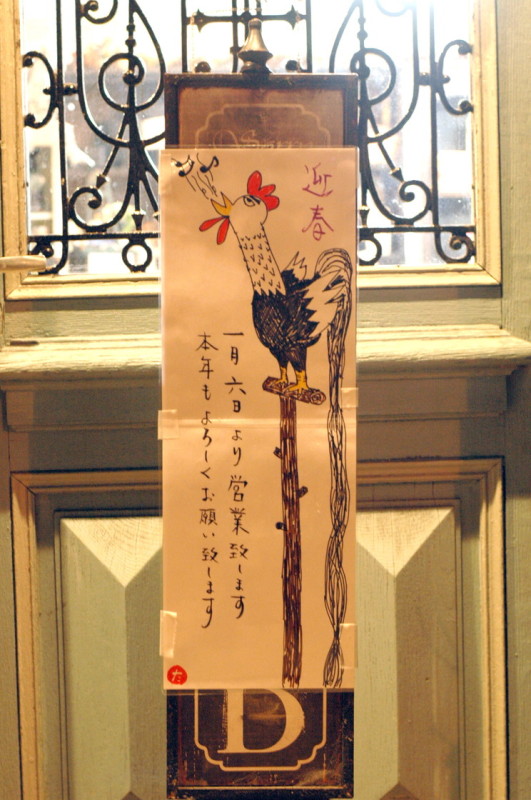 迎春
一月六日より営業致します
本年もよろしくお願い致します
た
D